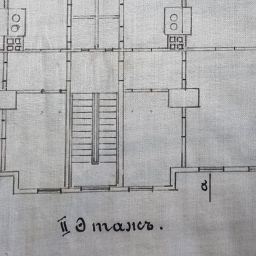 II Этажъ.
a